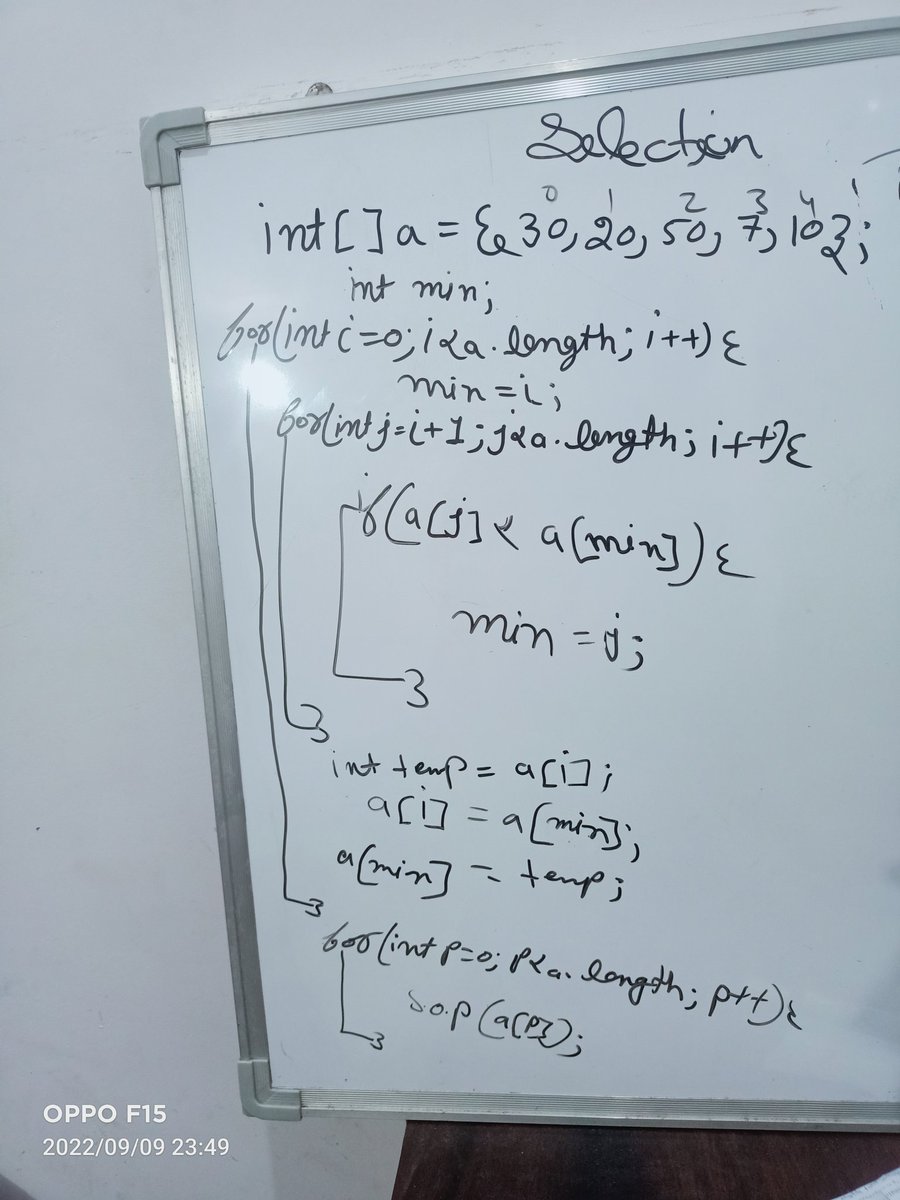 Selection
0 1 2 3 4
int[] a = {30, 20, 50, 7, 10};
int min;
for(int i=0; i<a.length; i++){
min=i;
for(int j=i+1; j<a.length; i++){
if(a[j] < a[min]){
min = j;
}
}
int temp = a[i];
a[i] = a[min];
a[min] = temp;
}
for(int p=0; p<a.length; p++){
S.o.p(a[p]);
}
OPPO F15
2022/09/09 23:49